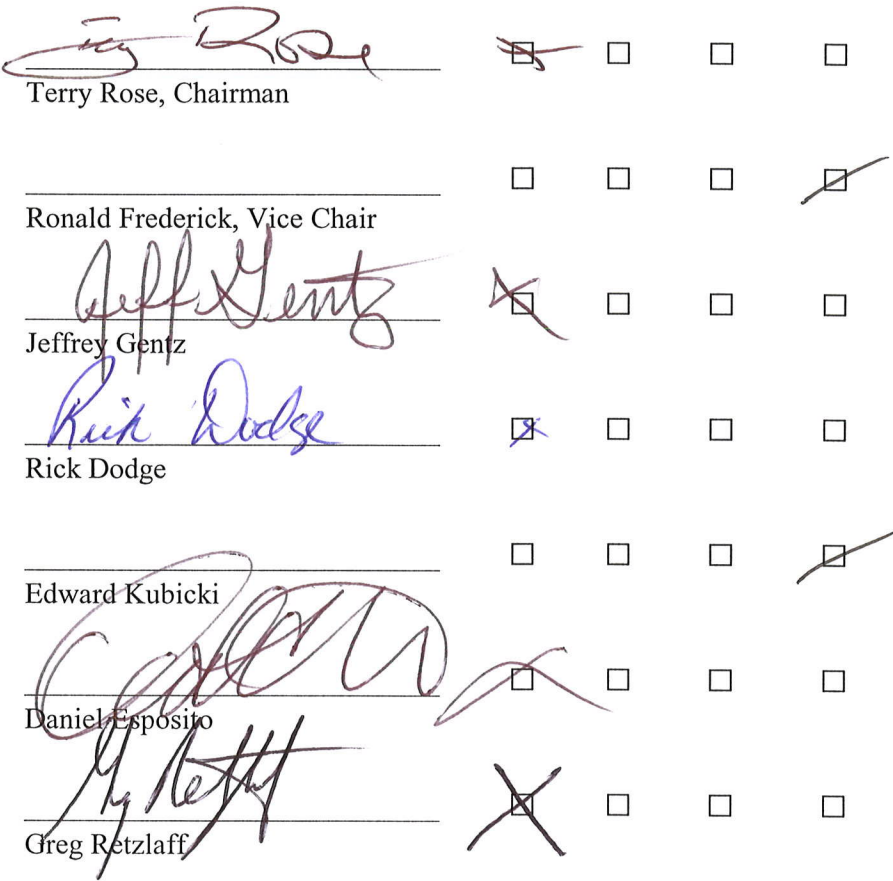 Terry Rose
☒ ☐ ☐ ☐
Terry Rose, Chairman
☐ ☐ ☐ ☒
Ronald Frederick, Vice Chair
Jeff Gentz
☒ ☐ ☐ ☐
Jeffrey Gentz
Rick Dodge
☒ ☐ ☐ ☐
Rick Dodge
☐ ☐ ☐ ☒
Edward Kubicki
☒ ☐ ☐ ☐
Daniel Esposito
☒ ☐ ☐ ☐
Greg Retzlaff